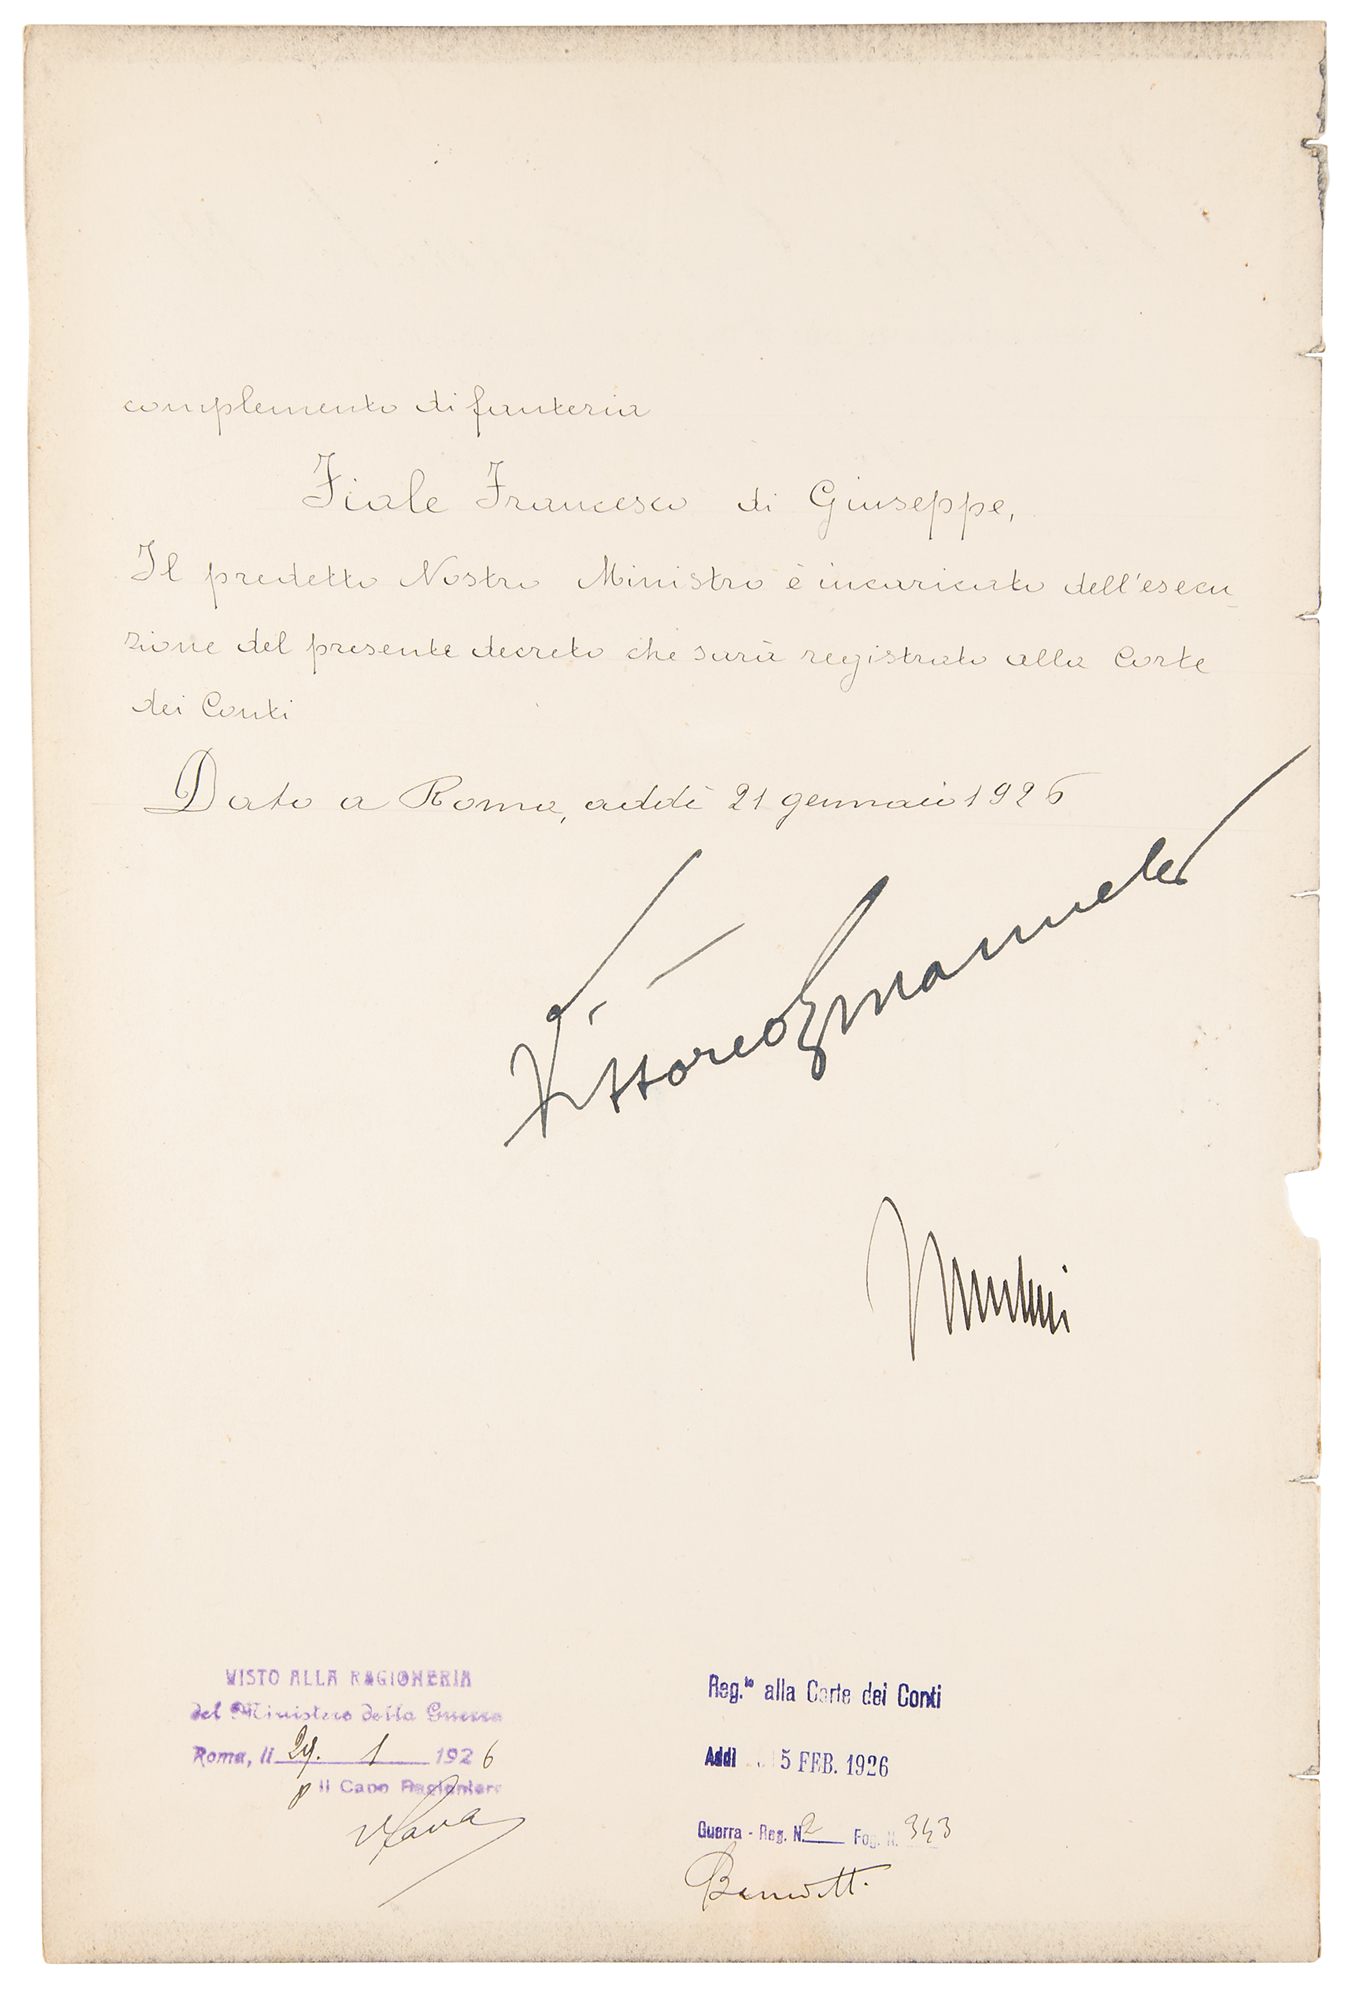 complemento di fanteria
Fiale Francesco di Giuseppe,
Il predetto Nostro Ministro è incaricato dell'esecu-
zione del presente decreto che sarà registrato alla Corte
dei Conti
Dato a Roma, addì 21 gennaio 1926
Vittorio Emanuele
Mussolini
VISTO ALLA RAGIONERIA
del Ministero della Guerra
Roma, li 29. 1 1926
p Il Capo Ragioniere
Reg.to alla Corte dei Conti
Addì 15 FEB. 1926
Guerra - Reg. N. 2 Fog. N. 343